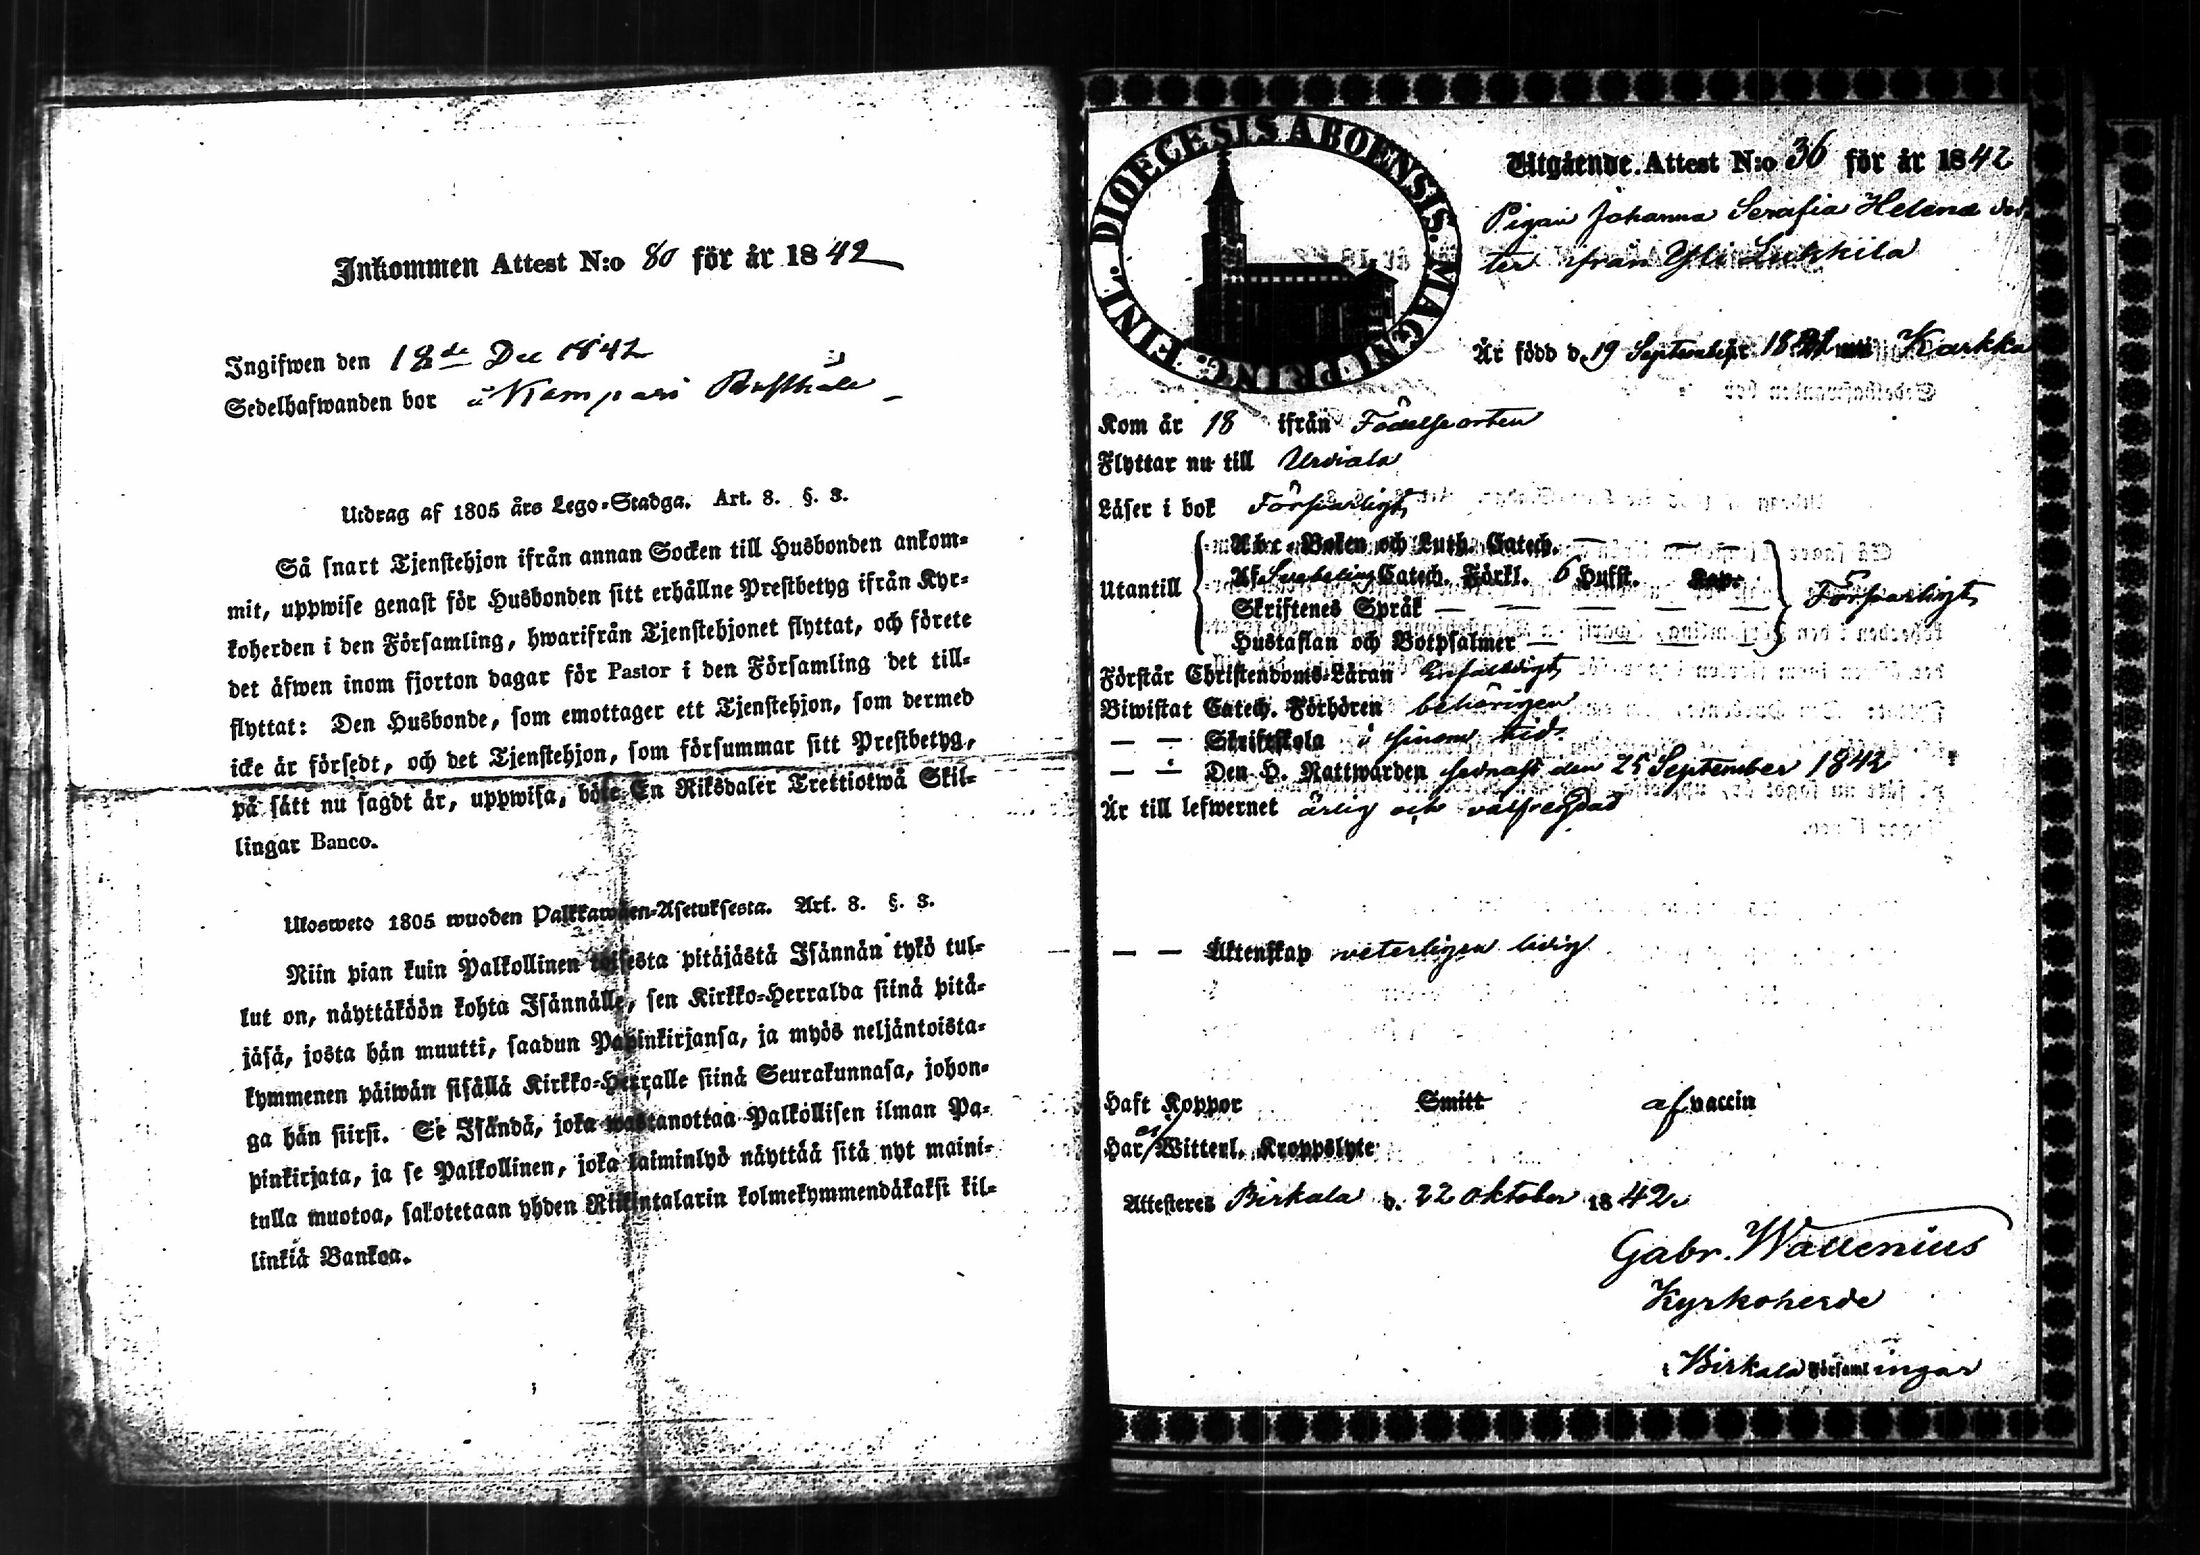 Inkommen Attest N:o 80 för år 1842
Ingifwen den 18de Dec 1842
Sedelhafwanden bor å Kampari Rusthåll
Utdrag af 1805 års Lego-Stadga. Art. 8. §. 3.
Så snart Tjenstehjon ifrån annan Socken till Husbonden ankom-
mit, uppwise genast för Husbonden sitt erhållne Prestbetyg ifrån Kyr-
koherden i den Församling, hwarifrån Tjenstehjonet flyttat, och förete
det äfwen inom fjorton dagar för Pastor i den Församling det till-
flyttat: Den Husbonde, som emottager ett Tjenstehjon, som dermed
icke är försedt, och det Tjenstehjon, som försummar sitt Prestbetyg,
på sätt nu sagdt är, uppwisa, böte En Riksdaler Trettiotwå Skil-
lingar Banco.
Ulosweto 1805 wuoden Palkkawäen-Asetuksesta. Art. 8. §. 3.
Niin pian kuin Palkollinen toisesta pitäjästä Isännän tykö tul-
lut on, näyttäköön kohta Isännälle, sen Kirkko-Herralda siinä pitä-
jäsä, josta hän muutti, saadun Papinkirjansa, ja myös neljäntoista-
kymmenen päiwän sisällä Kirkko-Herralle siinä Seurakunnasa, johon-
ga hän siirsi. Se Isändä, joka wastanottaa Palkollisen ilman Pa-
pinkirjata, ja se Palkollinen, joka laiminlyö näyttää sitä nyt maini-
tulla muotoa, sakotetaan yhden Riikintalarin kolmekymmendäkaksi kil-
linkiä Bankoa.
DIOECESIS ABOENSIS. MAGNI PRINC. FINL.
Utgående Attest N:o 36 för år 1842
Pigan Johanna Serafia Helena dot-
ter ifrån Yli Lukkila
Är född d. 19 September 1821 uti Karkku
Kom år 18 ifrån Födelseorten
Flyttar nu till Urdiala
Läser i bok Förswarligt
Utantill
Abc-Boken och Luth. Catech. — — —
Af Svebelius Catech. Förkl. 6 Hufst. Kap.
Skriftenes Språk — — — — —
Hustaflan och Botpsalmer — — — —
Förswarligt
Förstår Christendoms-Läran Enfaldigt
Biwistat Catech. Förhören behörigen
— — Skriftskola i sinom tid
— — Den H. Nattwarden sednast den 25 September 1842
Är till lefwernet ärlig och välfrägdad
— — Äktenskap weterligen ledig
Haft Koppor Smitt af vaccin
Har ej Witterl. Kroppslyte
Attesteres Birkala d. 22 oktober 1842
Gabr. Wallenius
Kyrkoherde
i Birkala Församlingar